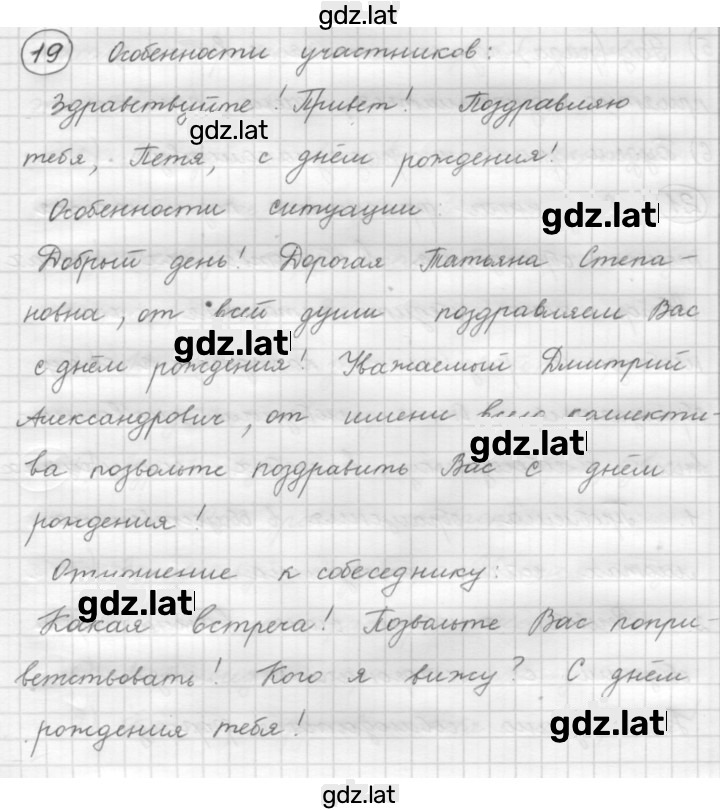 gdz.lat
19 Особенности участников:
Здравствуйте! Привет! Поздравляю
gdz.lat
тебя, Петя, с днём рождения!
Особенности ситуации:
gdz.lat
Добрый день! Дорогая Татьяна Степа-
новна, от всей души поздравляем Вас
gdz.lat
с днём рождения! Уважаемый Дмитрий
Александрович, от имени всего коллекти-
gdz.lat
ва позвольте поздравить Вас с днём
рождения!
Отношение к собеседнику:
gdz.lat
Какая встреча! Позвольте Вас попри-
ветствовать! Кого я вижу? С днём
gdz.lat
рождения тебя!
gdz.lat